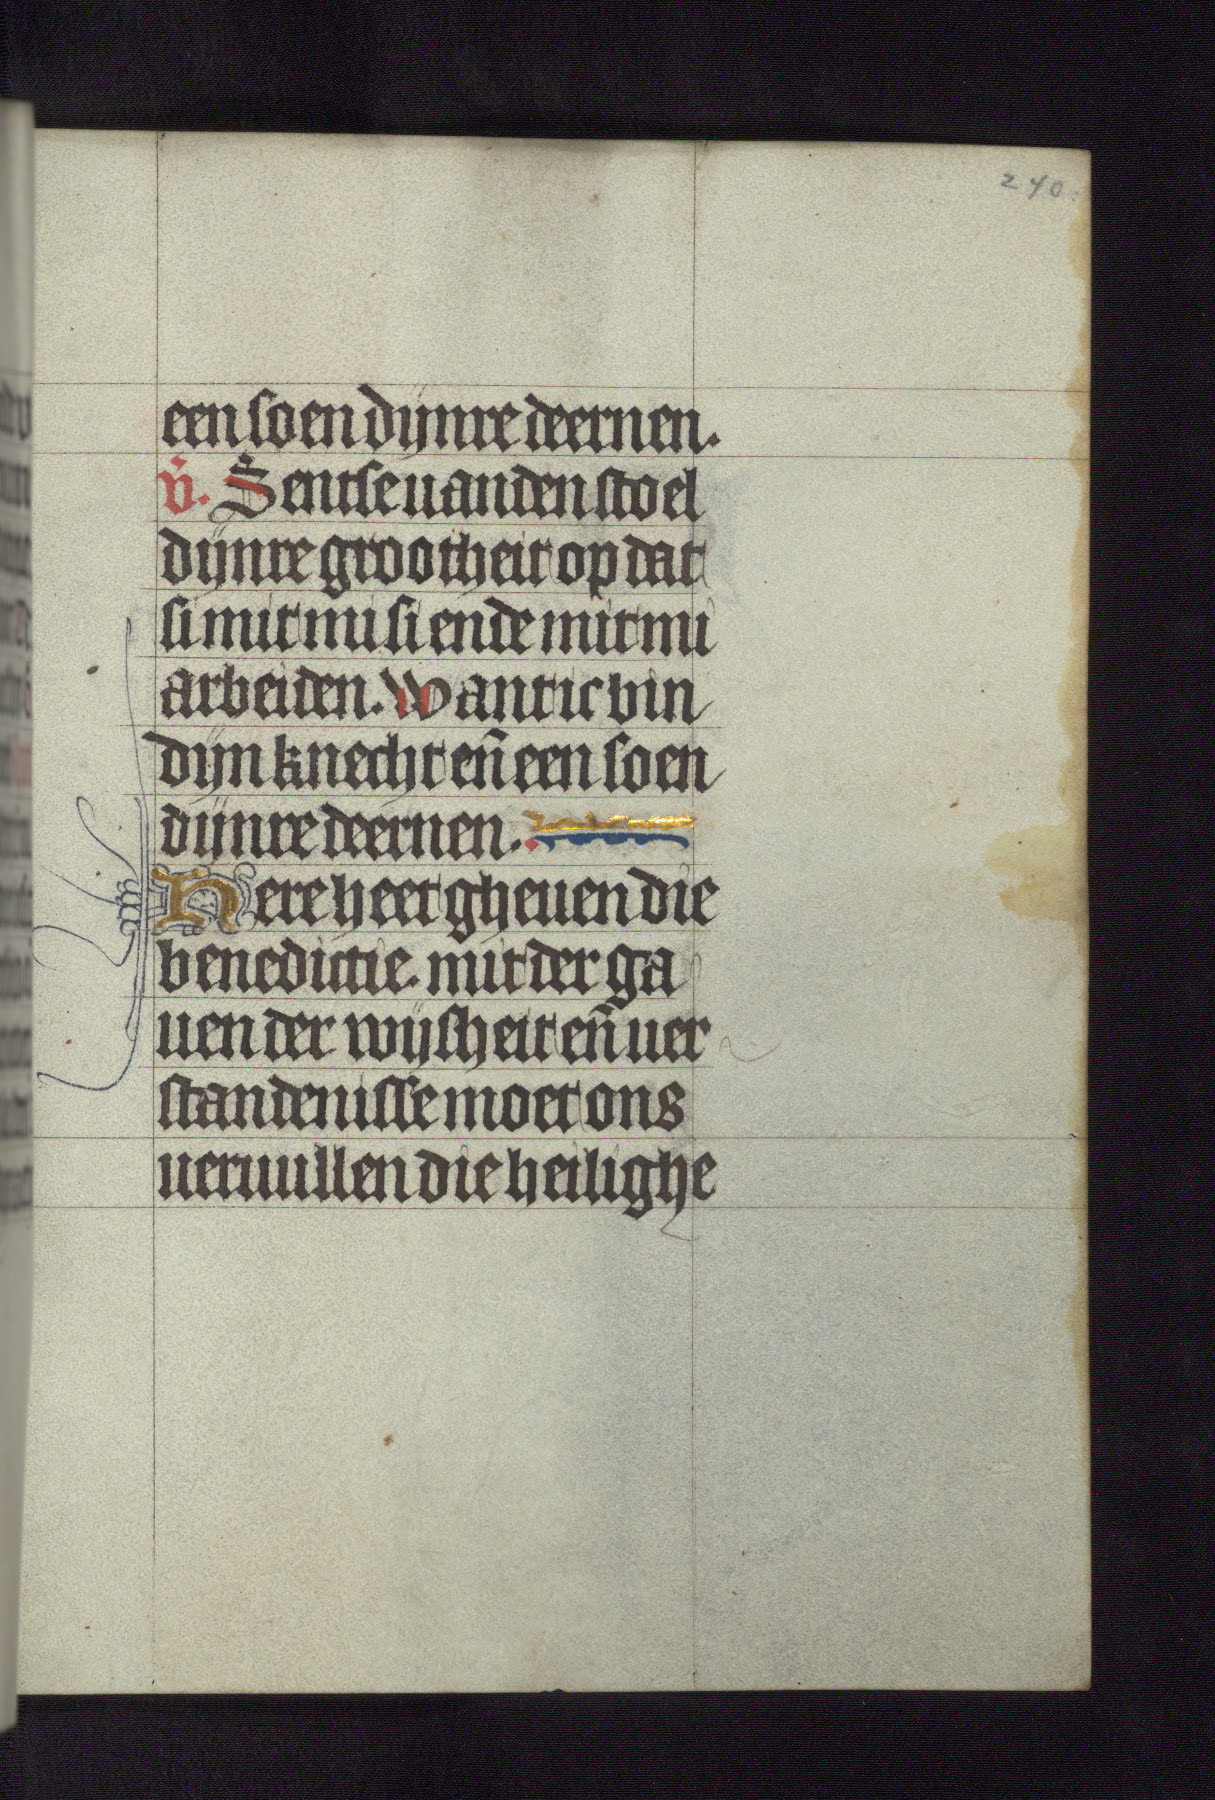 240
een soen dijnre deernen.
v̄. Sentse uanden stoel
dijnre grootheit op dat
si mit mi si ende mit mi
arbeiden. Want ic bin
dijn knecht en̄ een soen
dijnre deernen.
Here heer gheuen die
benedictie. mit der ga
uen der wijsheit en̄ uer
standenisse moet ons
ueruullen die heilighe